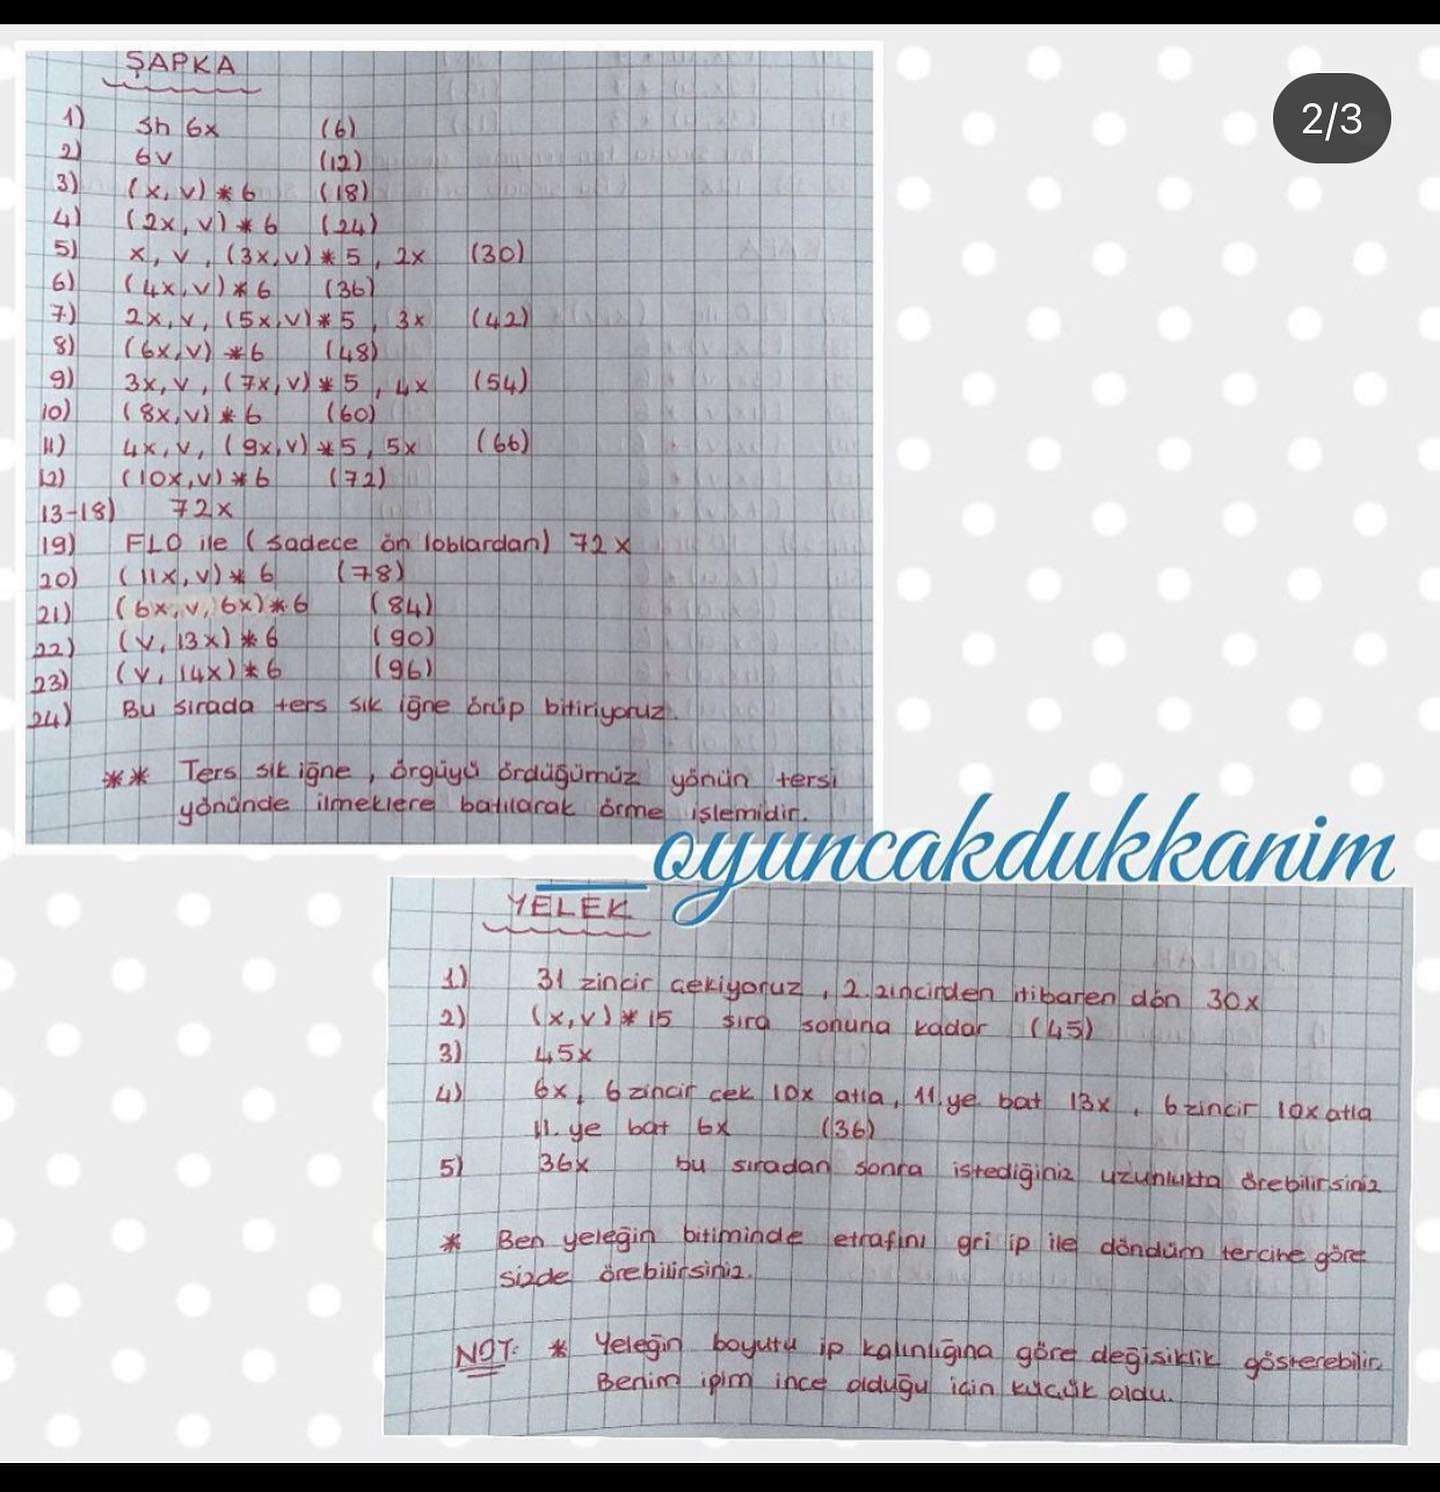 2/3
ŞAPKA
1) Sh 6x (6)
2) 6v (12)
3) (x, v) * 6 (18)
4) (2x, v) * 6 (24)
5) x, v, (3x, v) * 5, 2x (30)
6) (4x, v) * 6 (36)
7) 2x, v, (5x, v) * 5, 3x (42)
8) (6x, v) * 6 (48)
9) 3x, v, (7x, v) * 5, 4x (54)
10) (8x, v) * 6 (60)
11) 4x, v, (9x, v) * 5, 5x (66)
12) (10x, v) * 6 (72)
13-18) 72x
19) FLO ile (sadece ön loblardan) 72x
20) (11x, v) * 6 (78)
21) (6x, v, 6x) * 6 (84)
22) (v, 13x) * 6 (90)
23) (v, 14x) * 6 (96)
24) Bu sırada ters sık iğne örüp bitiriyoruz.
** Ters sık iğne, örgüyü ördüğümüz yönün tersi
yönünde ilmeklere batılarak örme işlemidir.
oyuncakdukkanim
YELEK
1) 31 zincir çekiyoruz, 2. zincirden itibaren dön 30x
2) (x, v) * 15 sıra sonuna kadar (45)
3) 45x
4) 6x, 6 zincir çek 10x atla, 11. ye bat 13x, 6 zincir 10x atla
11. ye bat 6x (36)
5) 36x bu sıradan sonra istediğiniz uzunlukta örebilirsiniz
* Ben yeleğin bitiminde etrafını gri ip ile döndüm tercihe göre
sizde örebilirsiniz.
NOT: * Yeleğin boyutu ip kalınlığına göre değişiklik gösterebilir.
Benim ipim ince olduğu için küçük oldu.